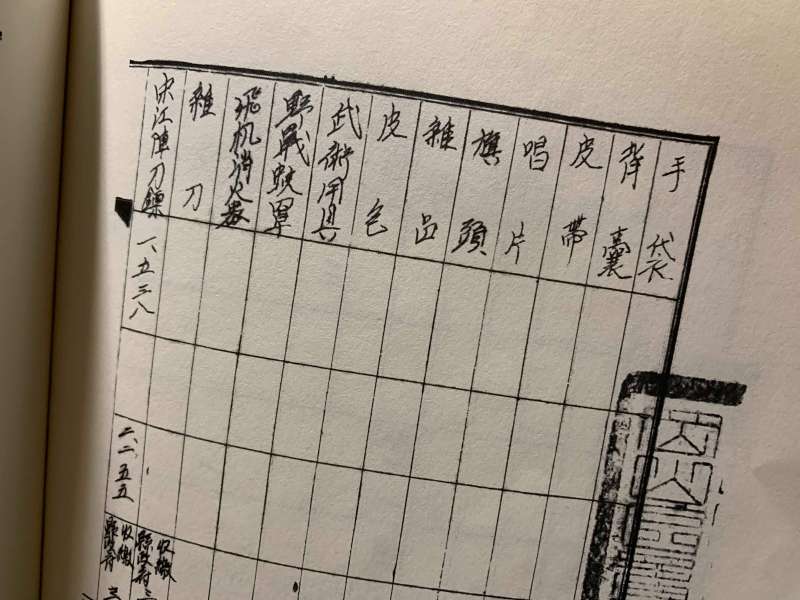 手袋
背囊
皮帶
唱片
旗頭
雜品
皮包
武術用具
野戰蚊罩
飛机消火器
雜刀
宋江陣刀鏢
一、五三八
二、二五五
收繳
收繳